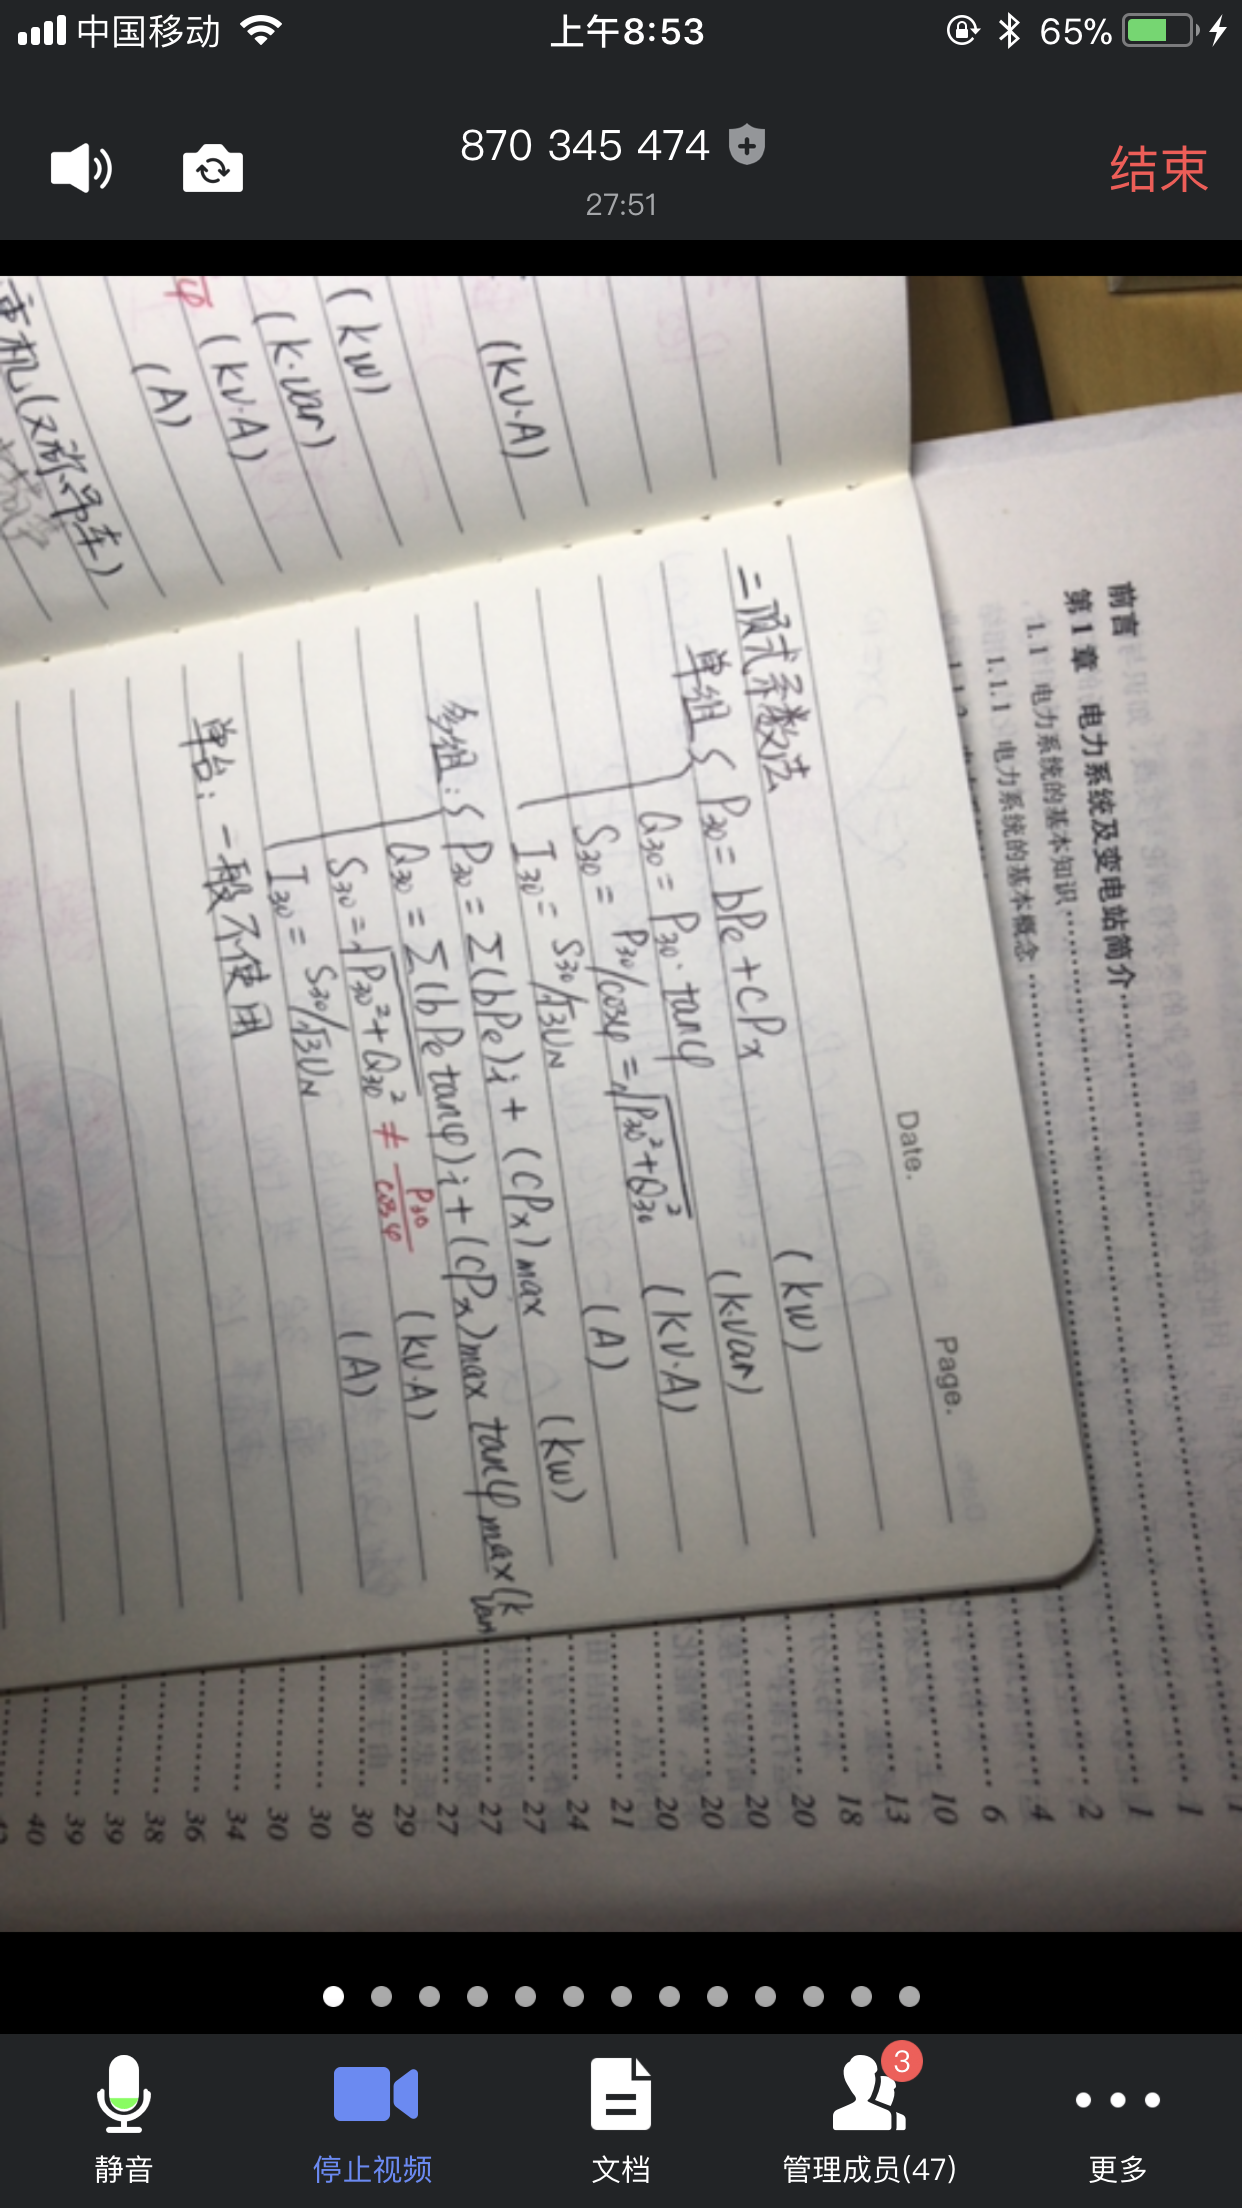 中国移动
上午8:53
65%
870 345 474
27:51
结束
(kW)
(k·var)
φ (kV·A)
(A)
(kV·A)
(又称吊车)
Date.
Page.
二项式系数法
单组 { P30 = bPe + cPx (kW)
Q30 = P30·tanφ (k·var)
S30 = P30/cosφ = √P30²+Q30² (kV·A)
I30 = S30/√3UN (A)
多组: { P30 = Σ(bPe)i + (cPx)max (kW)
Q30 = Σ(bPe tanφ)i + (cPx)max tanφmax (kvar
S30 = √P30²+Q30² ≠ P30/cosφ (kV·A)
I30 = S30/√3UN (A)
单台: 一般不使用
前言
第1章 电力系统及变电站简介
1.1 电力系统的基本知识
1.1.1 电力系统的基本概念
1
1
1
2
4
6
10
13
18
20
20
20
20
21
24
27
27
27
29
30
30
30
34
36
38
39
39
40
静音
停止视频
文档
3
管理成员(47)
更多